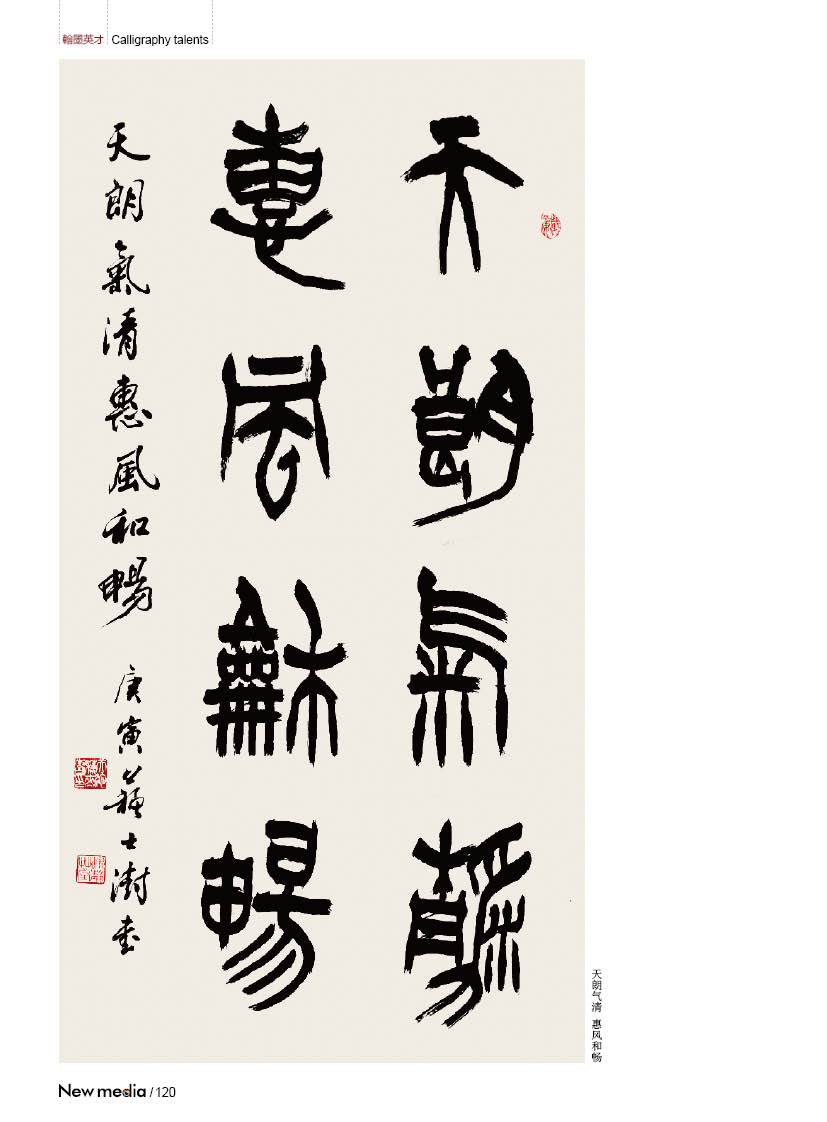 翰墨英才 Calligraphy talents
天朗氣清
惠風龢暢
天朗氣清惠風和暢 庚寅蘇士澍書
天朗气清 惠风和畅
New media / 120